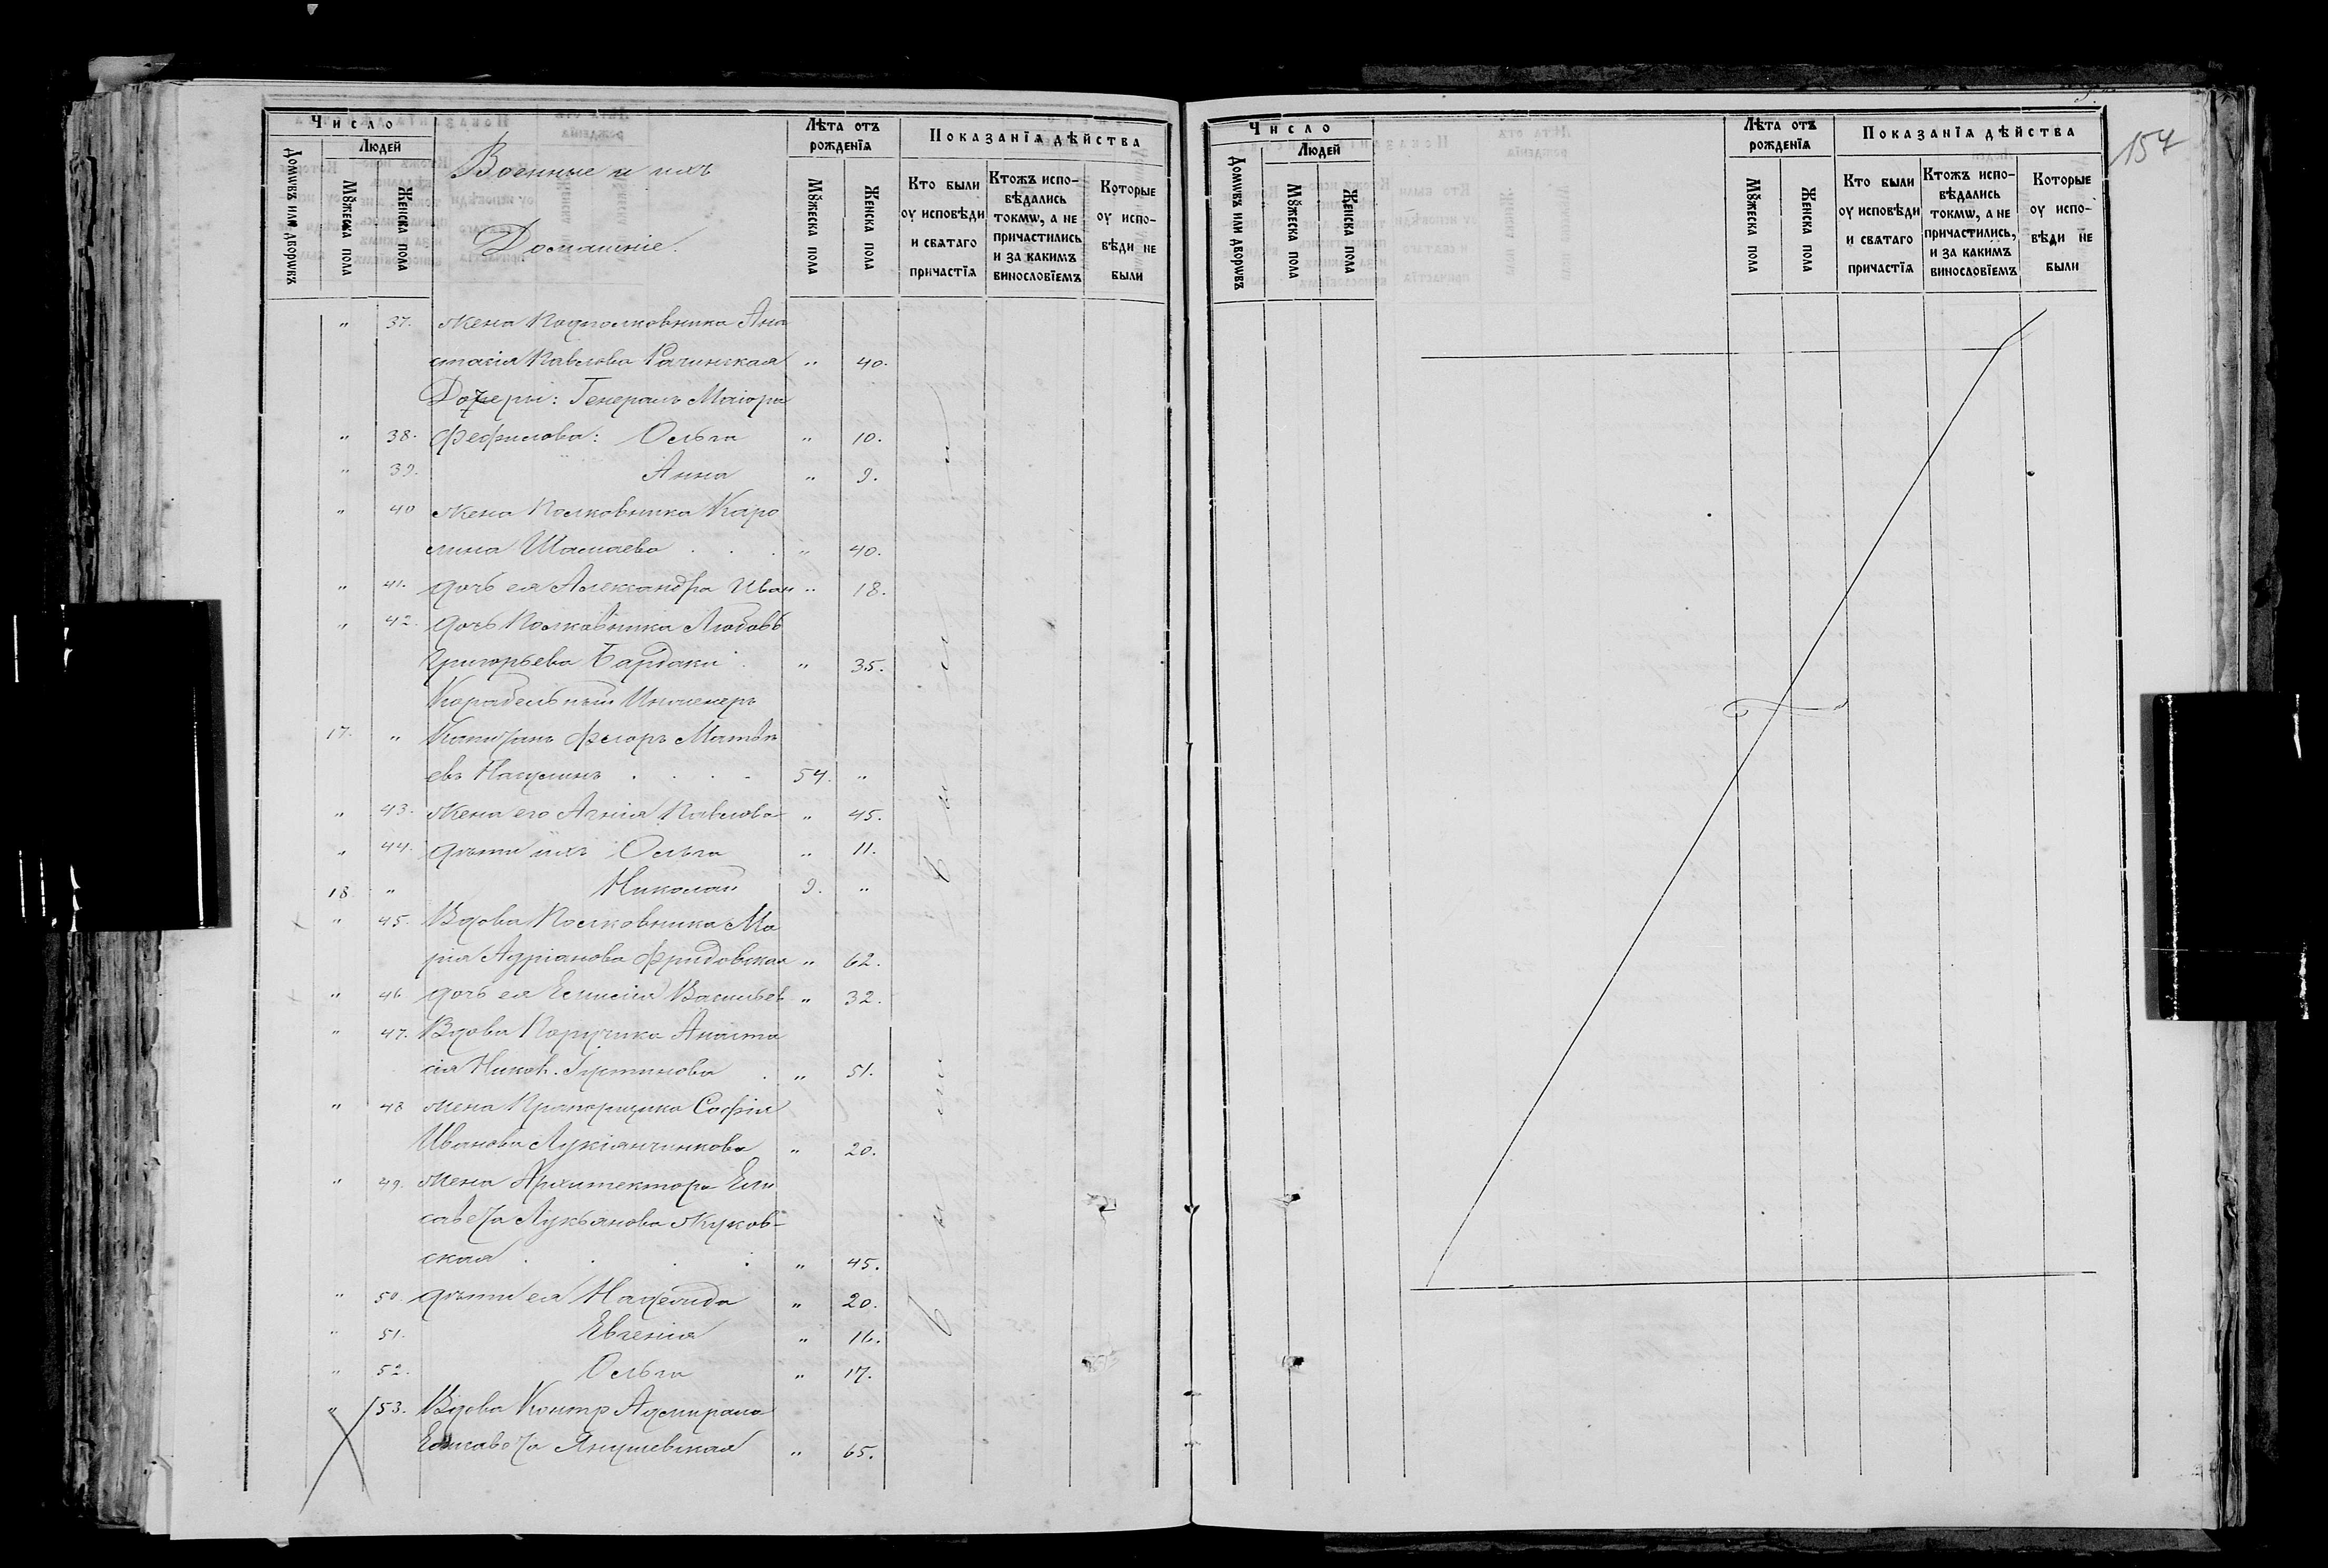 Число
Людей
Домѡвъ или дворѡвъ
Мꙋжеска пола
Женска пола
Военные и ихъ
Домашніе.
Лѣта отъ
рожденїѧ
Мꙋжеска пола
Женска пола
Показанїѧ дѣйства
Кто были
оу исповѣди
и свѧтаго
причастїѧ
Ктожъ испо-
вѣдались
токмѡ, а не
причастились
и за какимъ
винословїемъ
Которые
оу испо-
вѣди не
были
" 37. Жена Подполковника Ана
стасія Павлова Рачинская " 40.
Дочери: Генералъ Маіора
" 38. Фефилова: Ольга " 10.
" 39. Анна " 9.
" 40 Жена Полковника Каро
лина Шамаева . . . " 40.
" 41. дочь ея Александра Иван " 18.
" 42. дочь Полковника Любовь
Григорьева Бардаки . " 35.
Корабельный Инженеръ
17. " Капитанъ Федоръ Матвѣ
евъ . . . . 54. "
" 43. Жена его Агнія Павлова " 45.
" 44. дѣти ихъ Ольга " 11.
18 " Николай 9. "
" 45. Вдова Полковника Ма
рія Адріанова Фридовская " 62.
" 46. дочь ея Васильев " 32.
" 47. Вдова Поручика Анаста
сія Никол. . " 51.
" 48 жена Прапорщика Софія
Иванова Лукіанчикова " 20.
" 49. жена Архитектора Ели
савета Лукьянова Жуков-
ская . . . " 45.
" 50. дѣти ея Надежда " 20.
" 51. Евгенія " 16.
" 52. Ольга " 17.
" 53. Вдова Контр Адмирала
Елисавета Янушевская " 65.
были
Число
Людей
Домѡвъ или дворѡвъ
Мꙋжеска пола
Женска пола
Лѣта отъ
рожденїѧ
Мꙋжеска пола
Женска пола
Показанїѧ дѣйства
Кто были
оу исповѣди
и свѧтаго
причастїѧ
Ктожъ испо-
вѣдались
токмѡ, а не
причастились,
и за какимъ
винословїемъ
Которые
оу испо-
вѣди не
были
154